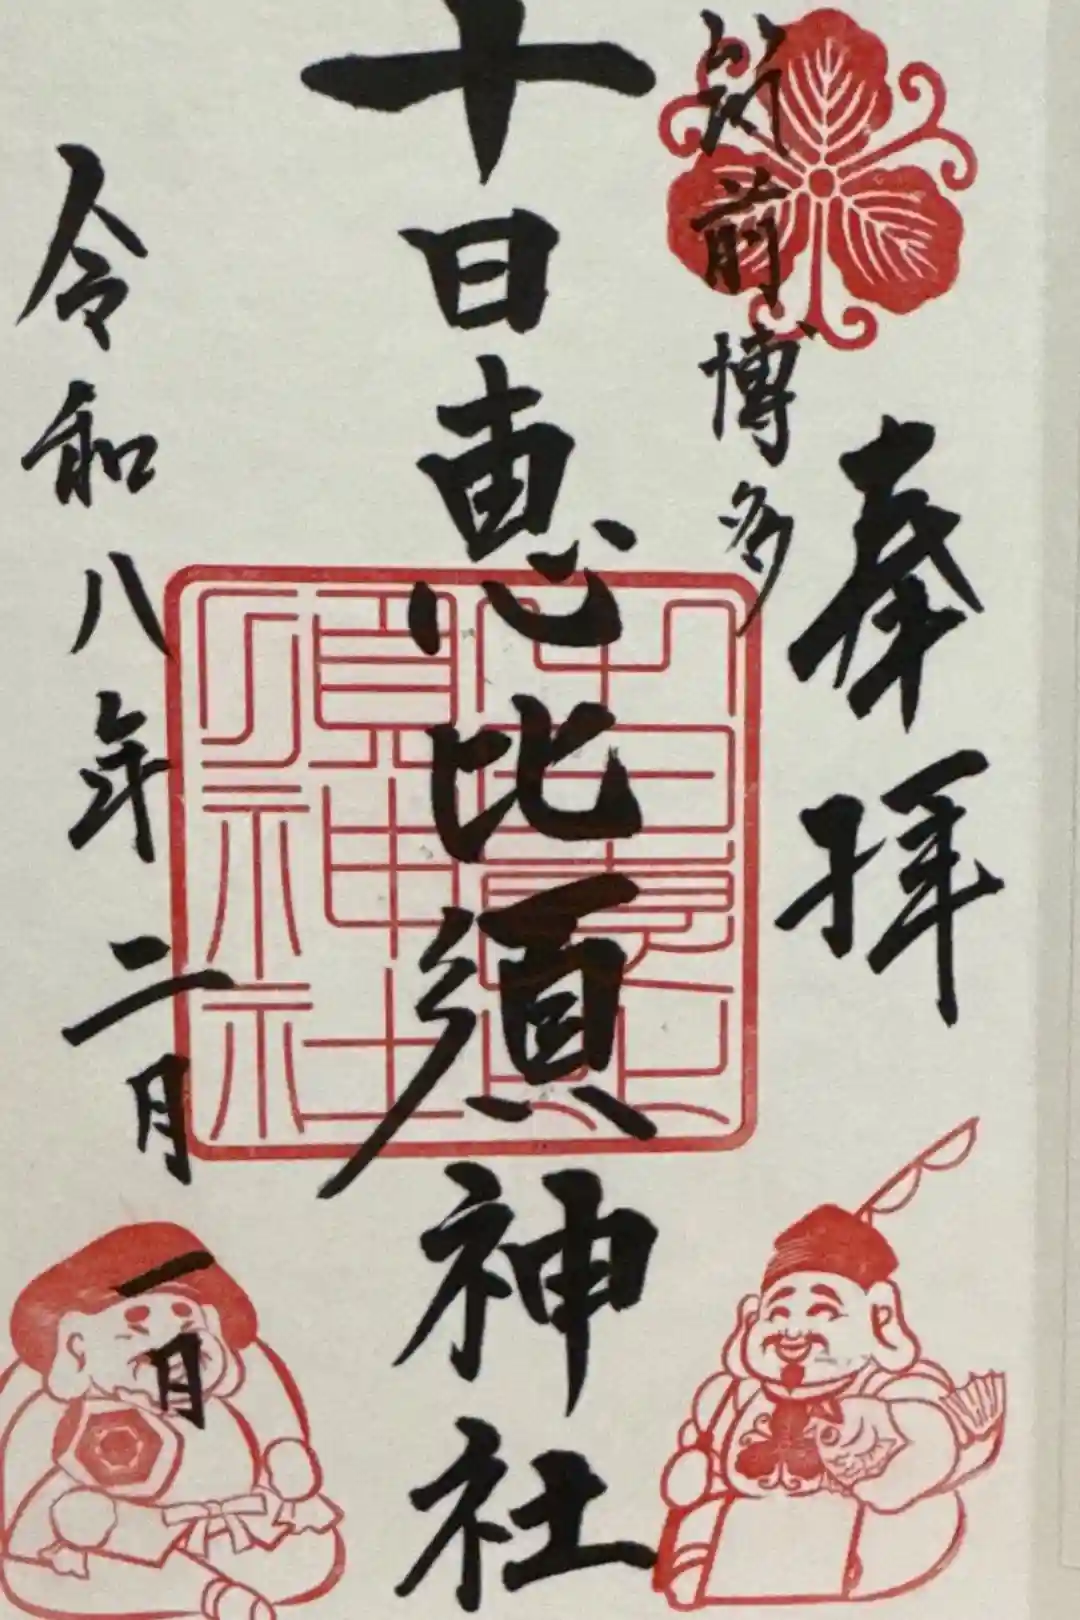 奉拝
筑前博多
十日恵比須神社
令和八年二月一日
須神社